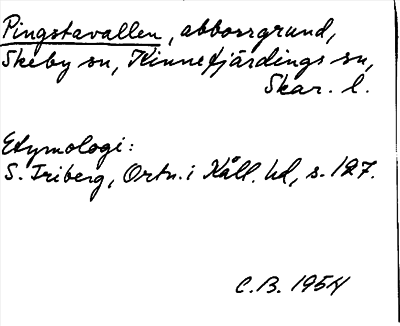 Pingstavallen, abborrgrund,
Skeby sn, Kinnefjärdings sn,
Skar. l.
Etymologi:
S. Friberg, Ortn. i Kåll. hd, s. 127.
C.B. 1954